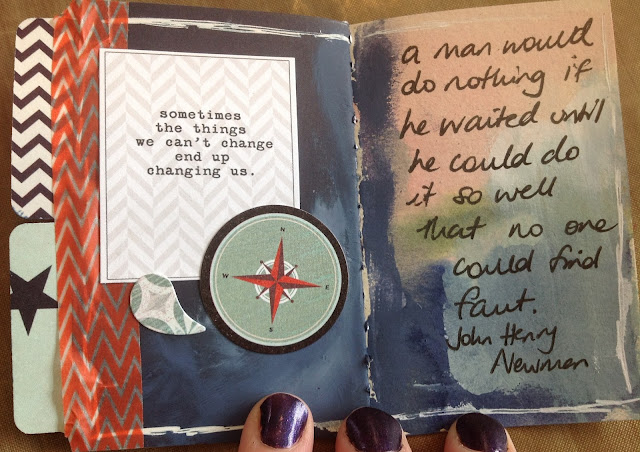 sometimes
the things
we can't change
end up
changing us.
N
W
E
S
a man would
do nothing if
he waited until
he could do
it so well
that no one
could find
faut.
John Henry
Newman